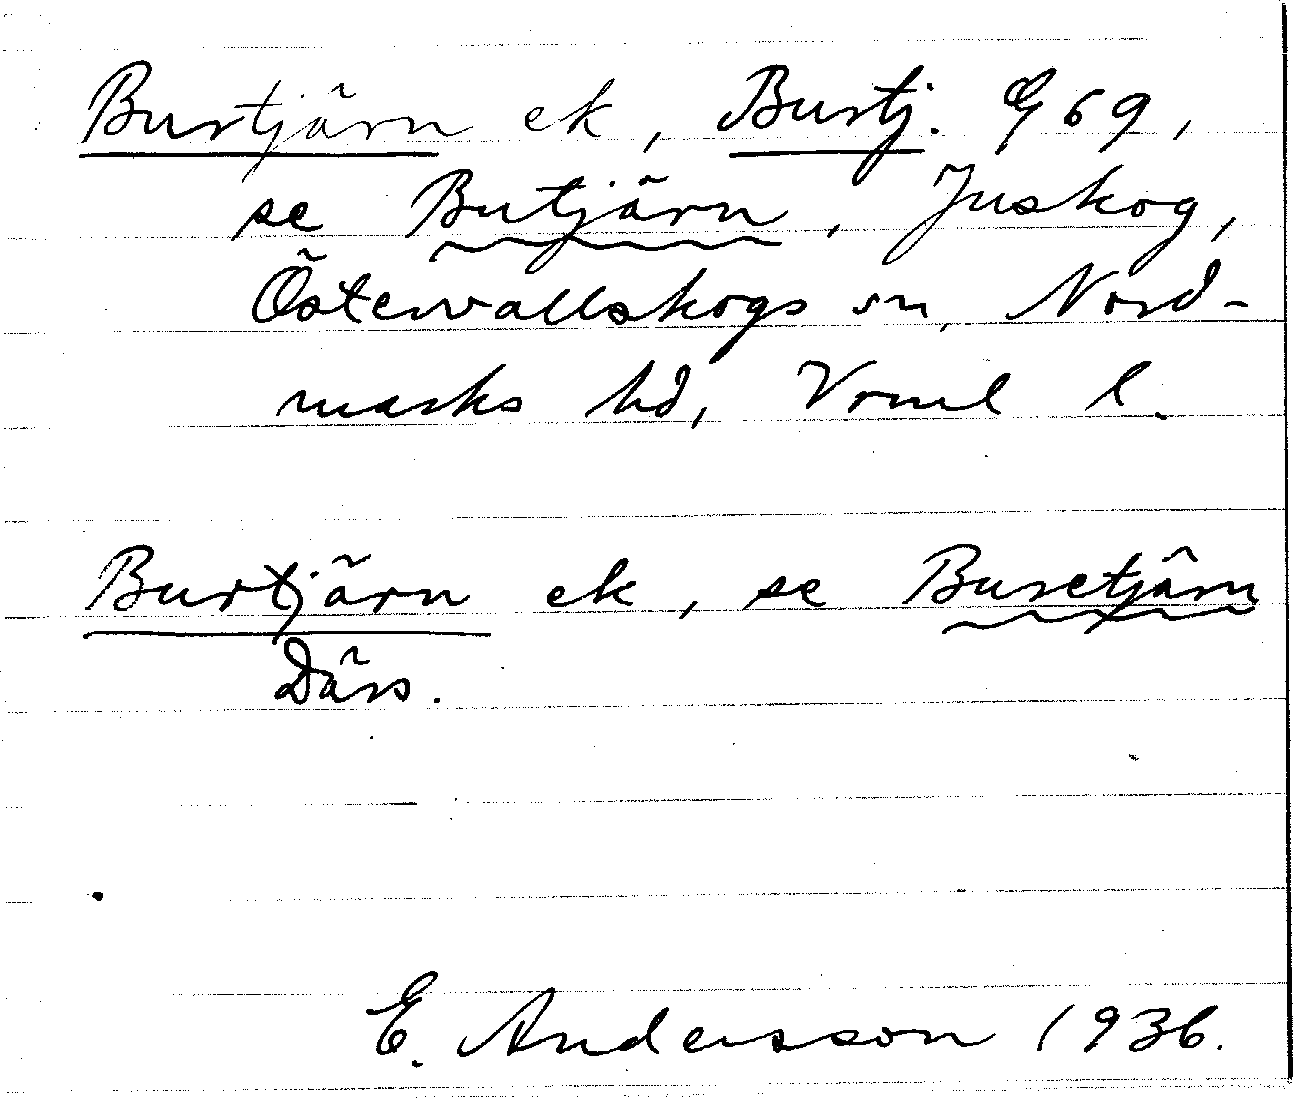 Burtjärn ek, Burtj. G 69,
se Butjärn, Juskog,
Östervallskogs sn, Nord-
marks hd, Vrml l.
Burtjärn ek, se Busetjärn
Därs.
E. Andersson 1936.